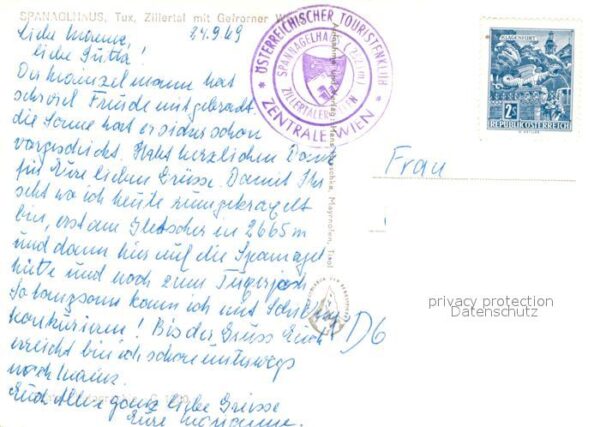 SPANAGLHAUS, Tux, Zillertal mit Gefrorner
24.9.69
Liebe Mama,
liebe Jutta!
Der Mainzelmann hat
so viel Freude mitgebracht
die Sonne hat er sicher schon
vorgeschickt. Habt herzlichen Dank
für Eure lieben Grüsse. Damit Ihr
seht wo ich heute
bin, erst am Gletscher in 2665 m
und dann hier auf die Spannagel
hütte und noch zum Tuxerjoch
So langsam kann ich mit
konkurieren! Bis der Gruss Euch
erreicht bin ich schon unterwegs
nach Mainz.
Euch Allen ganz liebe Grüsse
Eure Marianne.
ÖSTERREICHISCHER TOURISTENKLUB
ZENTRALE WIEN
SPANNAGELHAUS
ZILLERTALER ALPEN
Mayrhofen, Tirol
KLAGENFURT
2S
REPUBLIK ÖSTERREICH
Frau
D6
privacy protection
Datenschutz